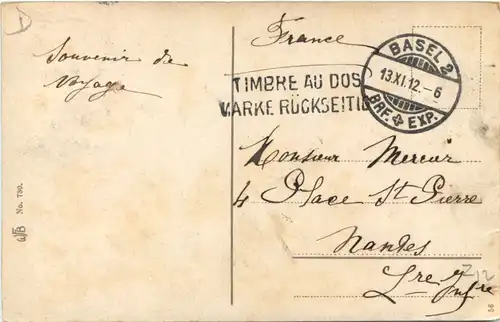 Souvenir de
Voyage
France
BASEL 2
13.XI.12.-6
BRF. EXP.
TIMBRE AU DOS
MARKE RÜCKSEITIG
Monsieur Mercier
4 Place St Pierre
Nantes
Lre Infre
No. 730.
56